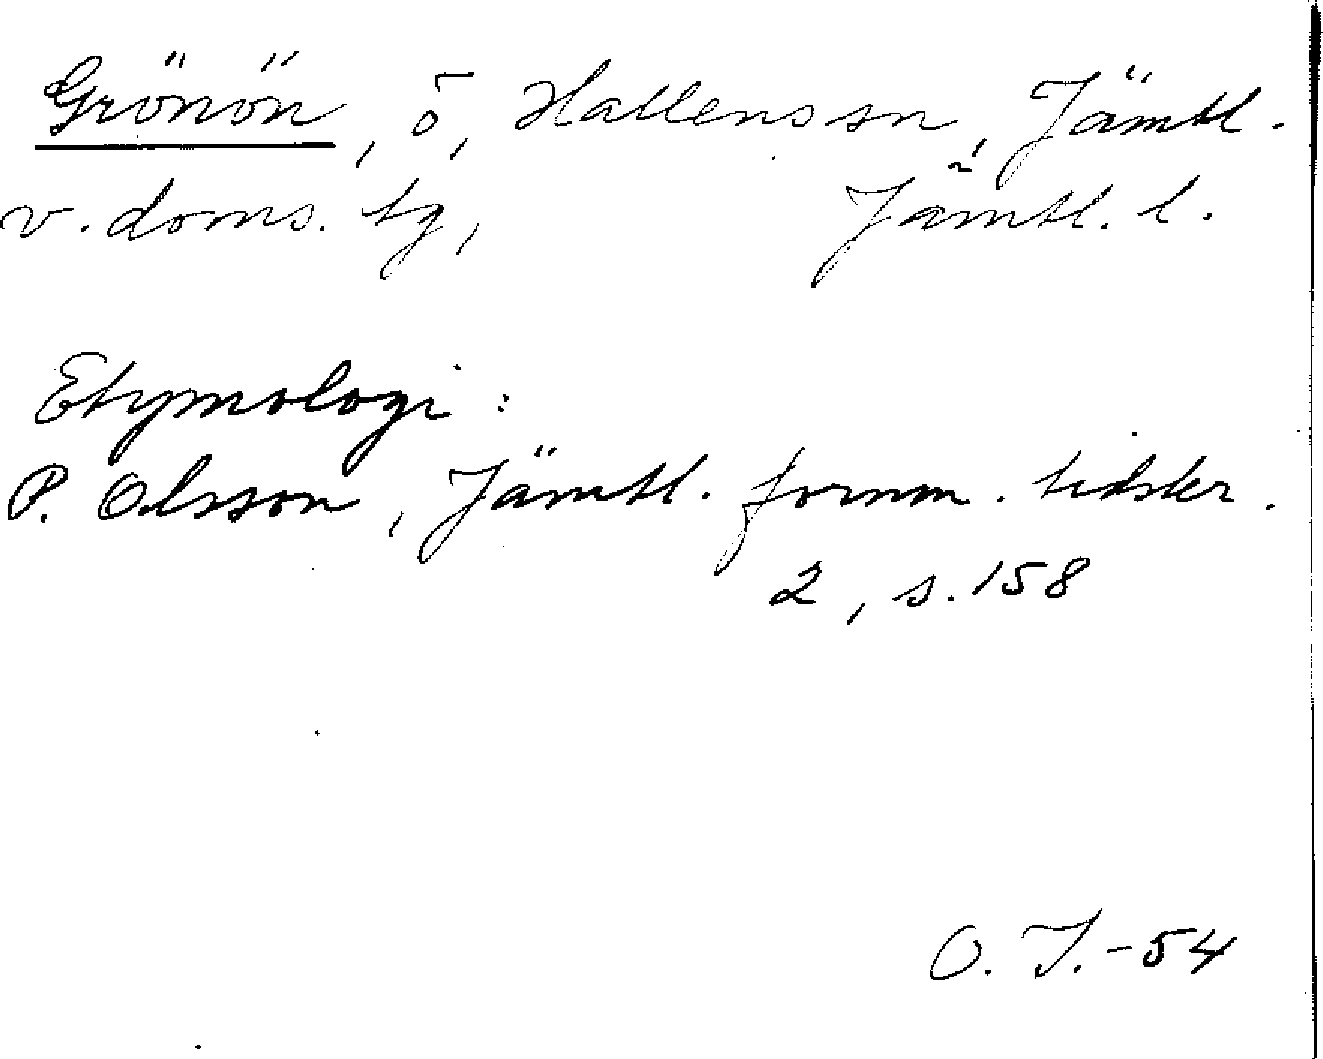 Grönön, ö, Hallens sn, Jämtl.
v. doms. tg, Jämtl. l.
Etymologi:
P. Olsson, Jämtl. fornm. tidskr.
2, s. 158
O. J. -54